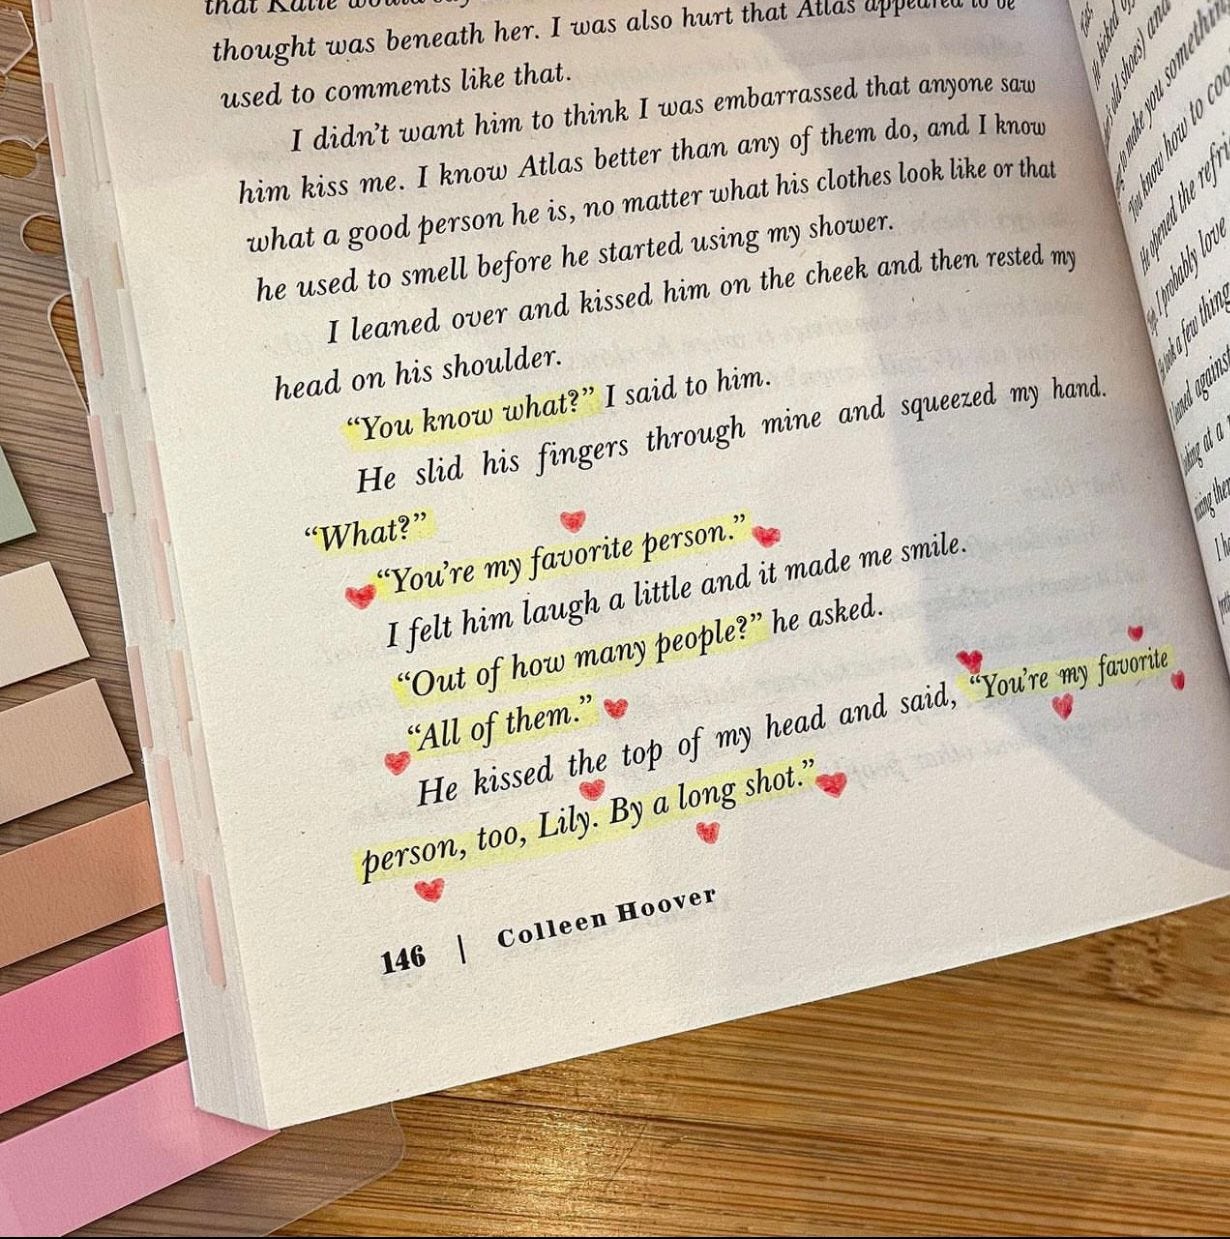 that Katie would say
thought was beneath her. I was also hurt that Atlas appeared to be
used to comments like that.
I didn’t want him to think I was embarrassed that anyone saw
him kiss me. I know Atlas better than any of them do, and I know
what a good person he is, no matter what his clothes look like or that
he used to smell before he started using my shower.
I leaned over and kissed him on the cheek and then rested my
head on his shoulder.
“You know what?” I said to him.
He slid his fingers through mine and squeezed my hand.
“What?”
“You’re my favorite person.”
I felt him laugh a little and it made me smile.
“Out of how many people?” he asked.
“All of them.”
He kissed the top of my head and said, “You’re my favorite
person, too, Lily. By a long shot.”
146 | Colleen Hoover
he kicked
old shoes) and
to make you something
“You know how to coo
He opened the refri
I probably love
took a few thing
against
at a
I h